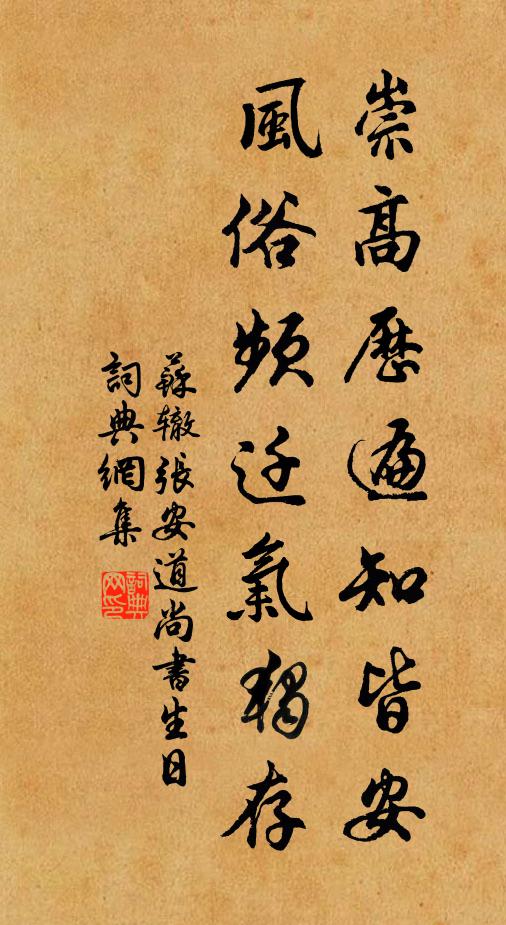 崇高歷遍知皆安
風俗頻迁氣獨存
蘇辙張安道尚書生日
詞典網集
詞典
网印